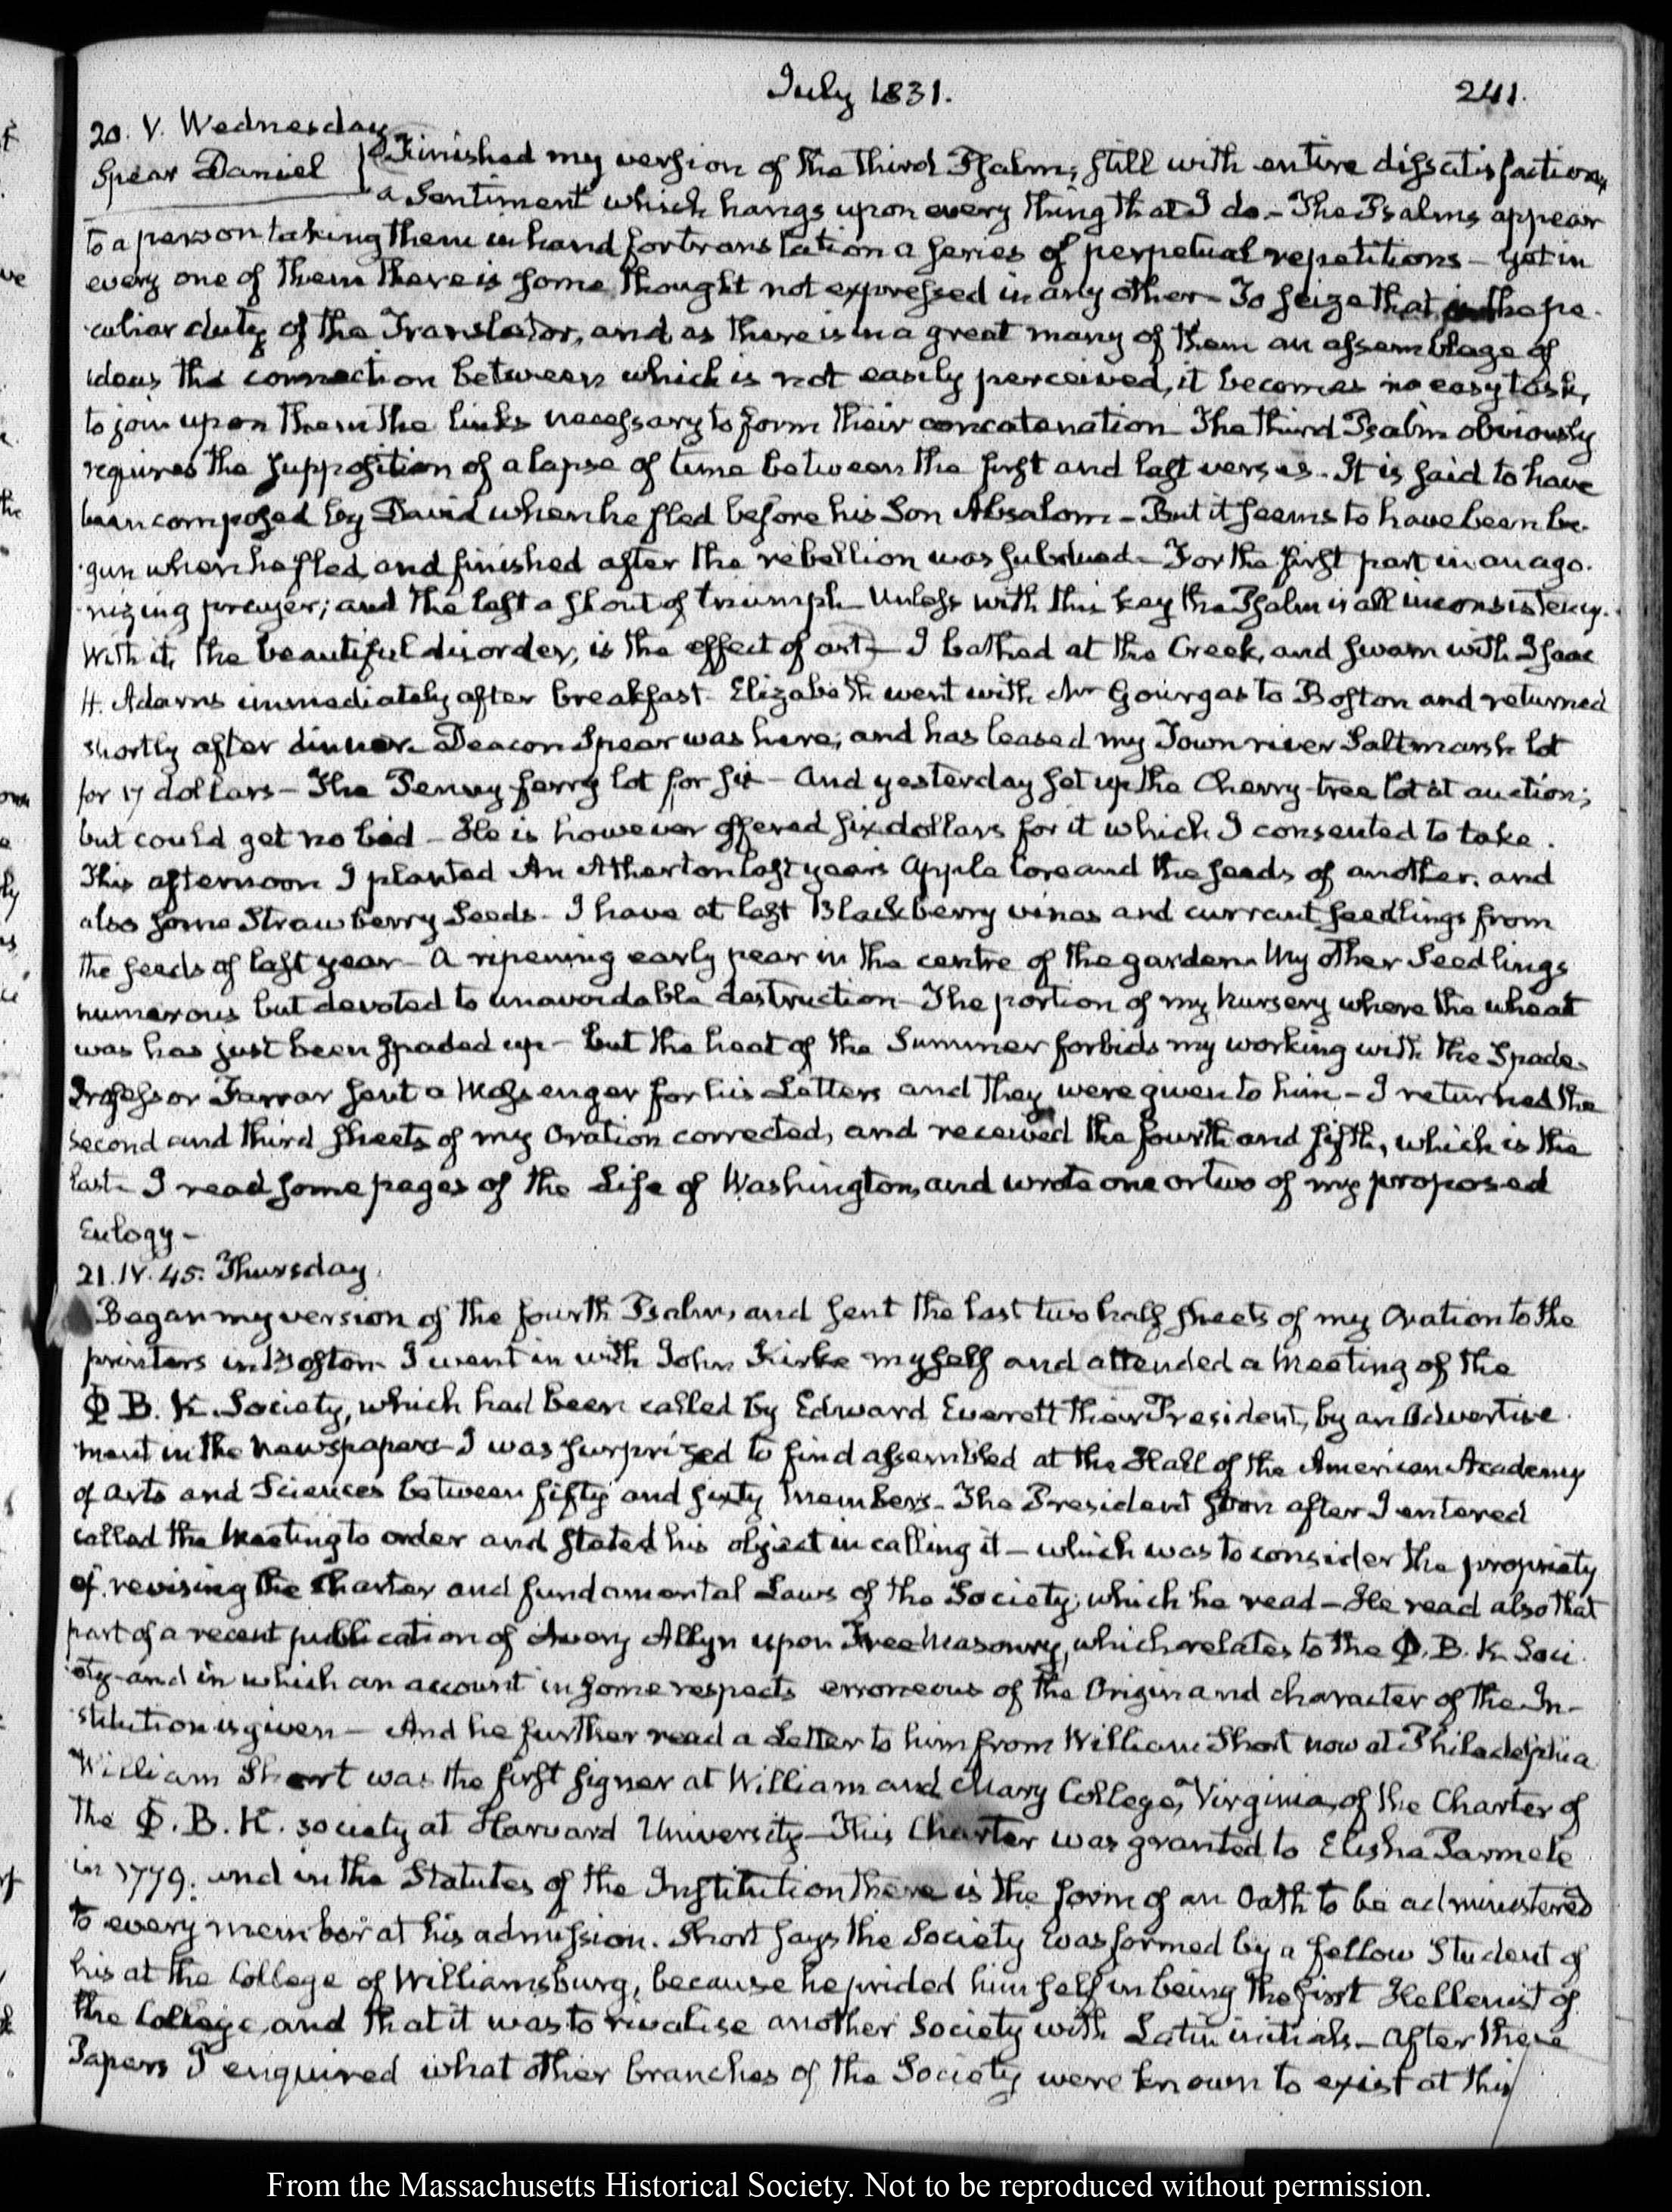 July 1831.
241.
20. V. Wednesday
Spear Daniel
Finished my version of the third Psalm; still with entire dissatisfaction,
a Sentiment which hangs upon every thing that I do. The Psalms appear
to a person taking them in hand for translation a series of perpetual repetitions – yet in
every one of them there is some thought not expressed in any other – To seize that is the pe-
culiar duty of the Translator, and as there is in a great many of them an assemblage of
ideas the connection between which is not easily perceived, it becomes no easy task,
to join upon them the links necessary to form their concatenation – The third Psalm obviously
requires the supposition of a lapse of time between the first and last verses. It is said to have
been composed by David when he fled before his Son Absalom – But it seems to have been be-
gun when he fled, and finished after the rebellion was subdued – For the first part is an ago-
nizing prayer; and the last a shout of triumph – Unless with this key the Psalm is all inconsistency.
With it, the beautiful disorder, is the effect of art – I bathed at the Creek, and swam with Isaac
H. Adams immediately after breakfast. Elizabeth went with Mr Gourgas to Boston and returned
shortly after dinner – Deacon Spear was here; and has leased my Town river Saltmarsh lot
for 17 dollars – The Penny-ferry lot for six – And yesterday set up the Cherry-tree lot at auction;
but could get no bid – He is however offered six dollars for it which I consented to take.
This afternoon I planted An Atherton last years Apple Core and the seeds of another, and
also some Strawberry Seeds. I have at last Blackberry vines and currant seedlings from
the seeds of last year – A ripening early pear in the centre of the garden. My other Seedlings
numerous but devoted to unavoidable destruction – The portion of my Nursery where the wheat
was has just been spaded up – but the heat of the Summer forbids my working with the Spade.
Professor Farrar sent a Messenger for his Letters and they were given to him – I returned the
second and third sheets of my Oration corrected, and received the fourth and fifth, which is the
last – I read some pages of the Life of Washington, and wrote one or two of my proposed
Eulogy –
21. IV. 45. Thursday.
Began my version of the fourth Psalm, and sent the last two half sheets of my Oration to the
printers in Boston – I went in with John Kirke myself and attended a Meeting of the
Φ B. K. Society, which had been called by Edward Everett their President, by an Advertise-
ment in the Newspapers – I was surprized to find assembled at the Hall of the American Academy
of Arts and Sciences between fifty and sixty members – The President soon after I entered
called the Meeting to order and stated his object in calling it – which was to consider the propriety
of revising the Charter and fundamental Laws of the Society; which he read – He read also that
part of a recent publication of Avery Allyn upon Free Masonry, which relates to the Φ. B. K Soci-
ety – and in which an account in some respects erroneous of the Origin and character of the In-
stitution is given – And he further read a Letter to him from William Short now at Philadelphia
William Short was the first signer at William and Mary College, Virginia, of the Charter of
the Φ. B. K. society at Harvard University – This Charter was granted to Elisha Parmele
in 1779. and in the Statutes of the Institution there is the form of an Oath to be administered
to every member at his admission. Short says the Society was formed by a fellow Student of
his at the College of Williamsburg, because he prided himself in being the first Hellenist of
the College, and that it was to rivalise another Society with Latin initials – After these
Papers I enquired what other branches of the Society were known to exist at this
From the Massachusetts Historical Society. Not to be reproduced without permission.